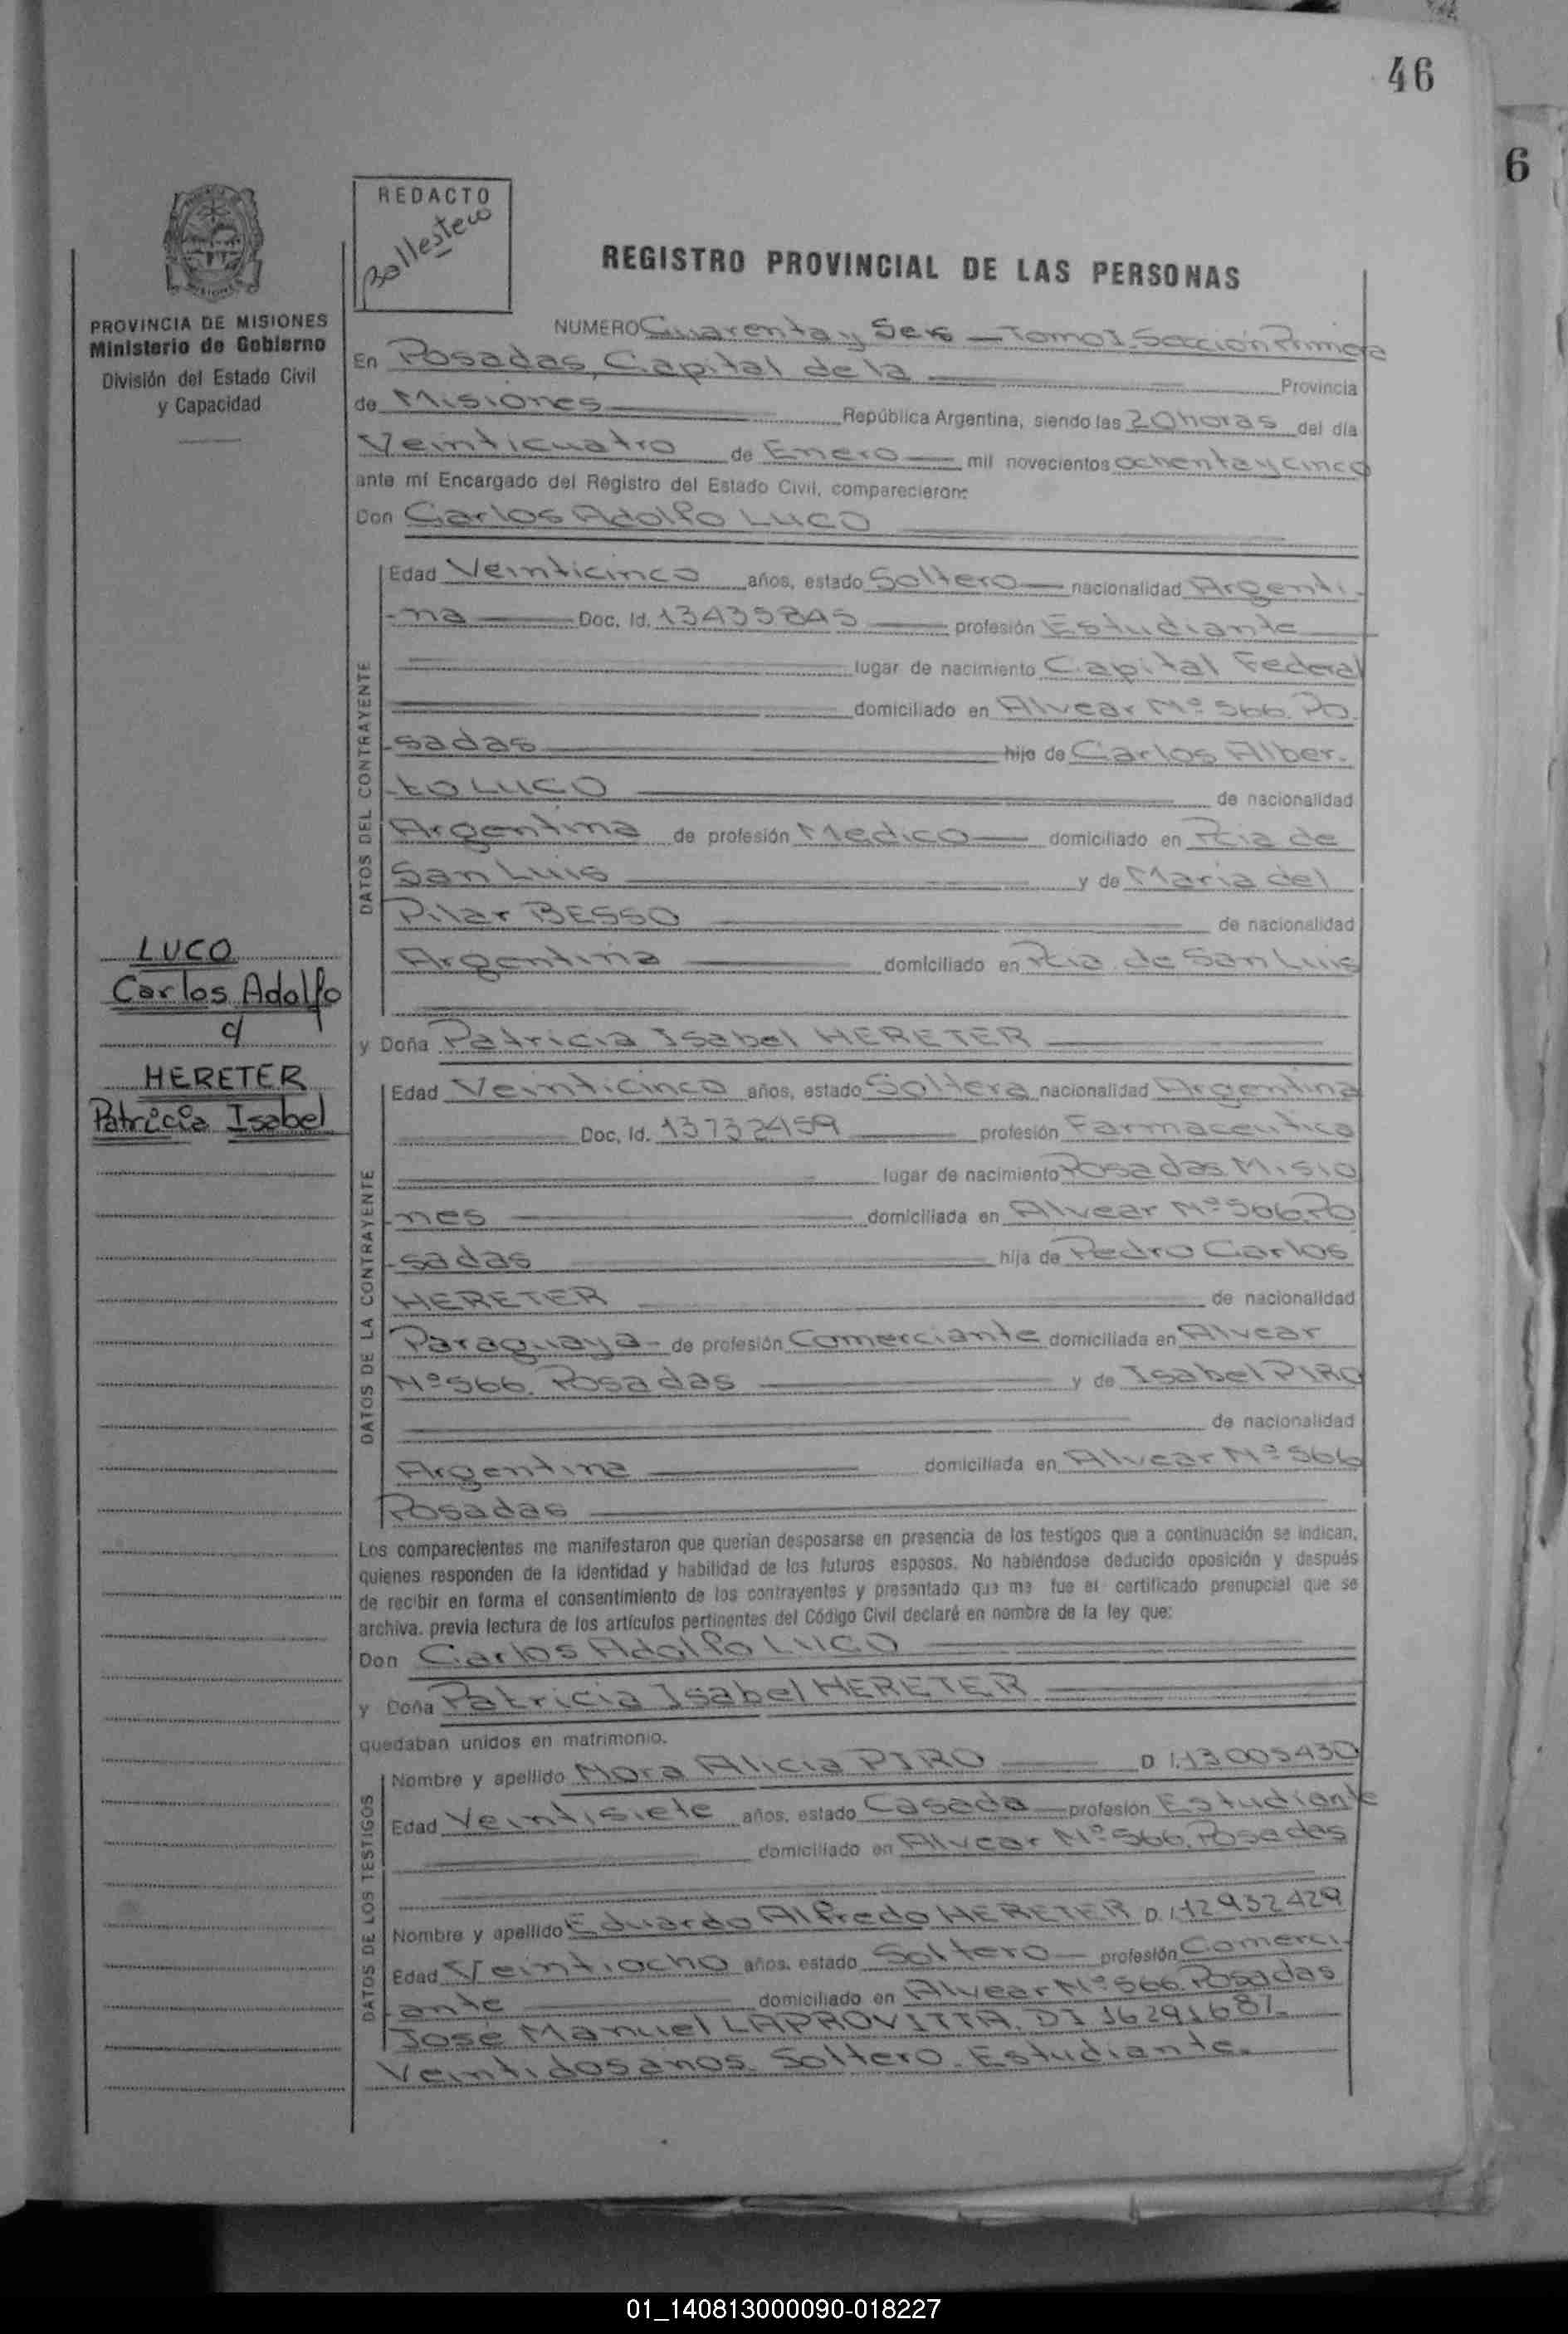 46
6
REDACTO
Ballestero
PROVINCIA DE MISIONES
Ministerio de Gobierno
División del Estado Civil
y Capacidad
LUCO
Carlos Adolfo
c/
HERETER
Patricia Isabel
REGISTRO PROVINCIAL DE LAS PERSONAS
NUMERO Cuarenta y Seis - Tomo I Sección Primera
En Posadas, Capital de la Provincia
de Misiones República Argentina, siendo las 20 horas del día
Veinticuatro de Enero mil novecientos ochenta y cinco
ante mí Encargado del Registro del Estado Civil, comparecieron:
Don Carlos Adolfo LUCO
DATOS DEL CONTRAYENTE
Edad Veinticinco años, estado Soltero nacionalidad Argenti-
-na Doc. Id. 13435845 profesión Estudiante
lugar de nacimiento Capital Federal
domiciliado en Alvear Nº 566. Po-
-sadas hijo de Carlos Alber-
-to LUCO de nacionalidad
Argentina de profesión Medico domiciliado en Pcia de
San Luis y de Maria del
Pilar BESSO de nacionalidad
Argentina domiciliado en Pcia. de San Luis
y Doña Patricia Isabel HERETER
DATOS DE LA CONTRAYENTE
Edad Veinticinco años, estado Soltera nacionalidad Argentina
Doc. Id. 13732459 profesión Farmaceutica
lugar de nacimiento Posadas Misio
-nes domiciliada en Alvear Nº 566. Po
-sadas hija de Pedro Carlos
HERETER de nacionalidad
Paraguaya- de profesión Comerciante domiciliada en Alvear
Nº 566. Posadas y de Isabel PIRO
de nacionalidad
Argentina domiciliada en Alvear Nº 566
Posadas
Los comparecientes me manifestaron que querían desposarse en presencia de los testigos que a continuación se indican,
quienes responden de la identidad y habilidad de los futuros esposos. No habiéndose deducido oposición y después
de recibir en forma el consentimiento de los contrayentes y presentado que me fue el certificado prenupcial que se
archiva. previa lectura de los artículos pertinentes del Código Civil declaré en nombre de la ley que:
Don Carlos Adolfo LUCO
y Doña Patricia Isabel HERETER
quedaban unidos en matrimonio.
DATOS DE LOS TESTIGOS
Nombre y apellido Nora Alicia PIRO D I. 13005430
Edad Veintisiete años, estado Casada profesión Estudiante
domiciliado en Alvear Nº 566. Posadas
Nombre y apellido Eduardo Alfredo HERETER D. I. 12932429
Edad Veintiocho años. estado Soltero profesión Comerci-
-ante domiciliado en Alvear Nº 566. Posadas
José Manuel LAPROVITTA. DI 16291681-
Veintidos años. Soltero. Estudiante.
01_140813000090-018227